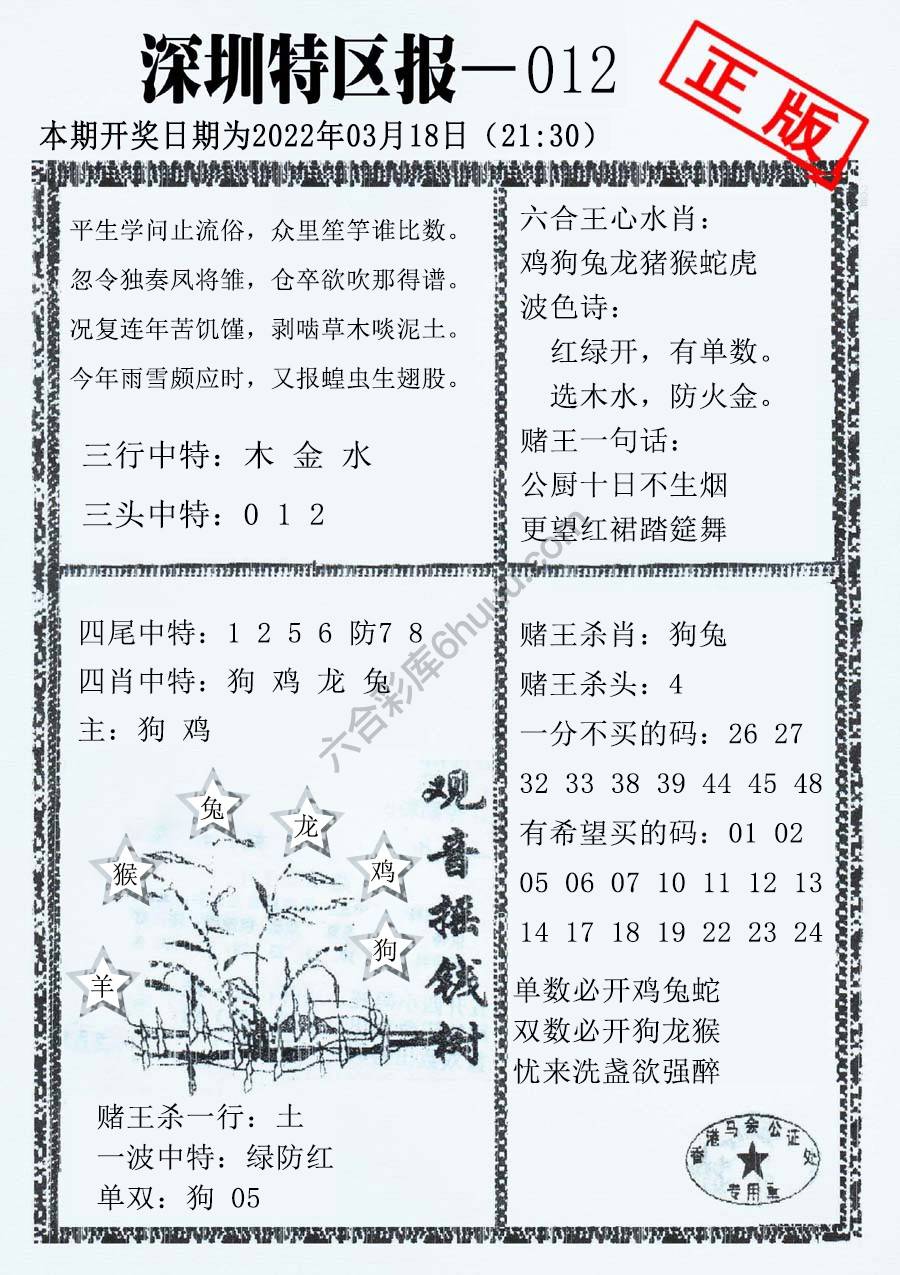 深圳特区报—012
正版
本期开奖日期为2022年03月18日（21:30）
平生学问止流俗，众里笙竽谁比数。
忽令独奏凤将雏，仓卒欲吹那得谱。
况复连年苦饥馑，剥啮草木啖泥土。
今年雨雪颇应时，又报蝗虫生翅股。
三行中特：木 金 水
三头中特：0 1 2
六合王心水肖：
鸡狗兔龙猪猴蛇虎
波色诗：
红绿开，有单数。
选木水，防火金。
赌王一句话：
公厨十日不生烟
更望红裙踏筵舞
四尾中特：1 2 5 6 防7 8
四肖中特：狗 鸡 龙 兔
主：狗 鸡
兔
龙
猴
鸡
狗
羊
观音摇钱树
赌王杀一行：土
一波中特：绿防红
单双：狗 05
赌王杀肖：狗兔
赌王杀头：4
一分不买的码：26 27
32 33 38 39 44 45 48
有希望买的码：01 02
05 06 07 10 11 12 13
14 17 18 19 22 23 24
单数必开鸡兔蛇
双数必开狗龙猴
忧来洗盏欲强醉
香港马会公证处
专用章
六合彩库6huuu.com